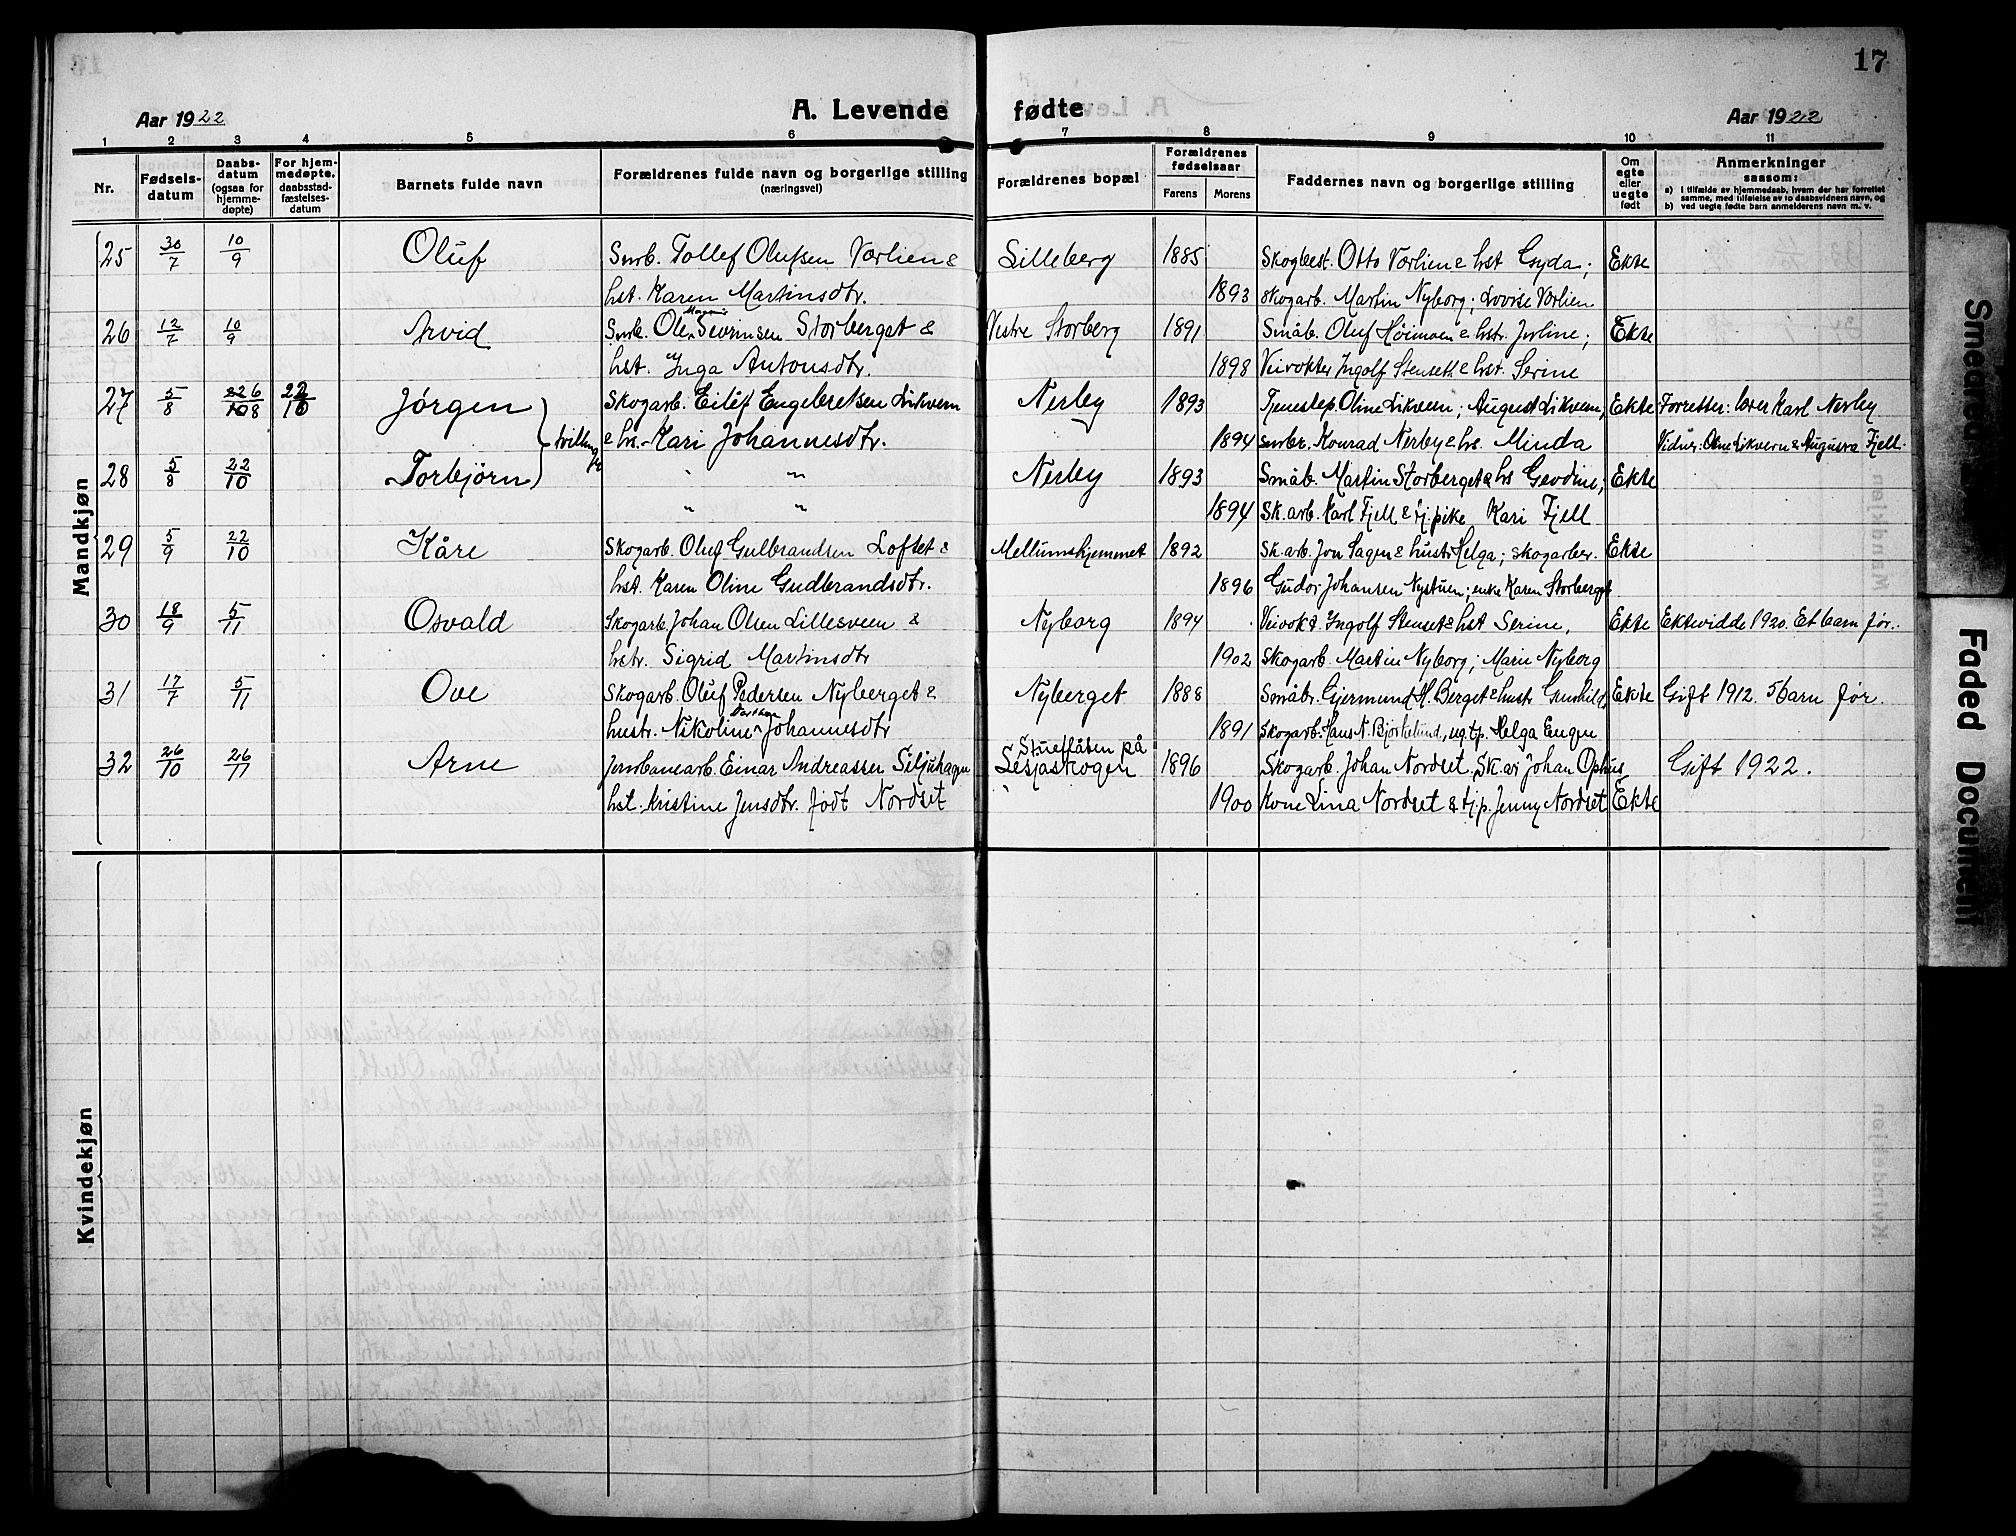 17
A. Levende fødte
Aar 1922
Aar 1922
1 2 3 4 5 6 7 8 9 10 11
Nr.
Fødselsdatum
Daabsdatum (ogsaa for hjemmedøpte)
For hjemmedøpte. daabsstadfæstelsesdatum
Barnets fulde navn
Forældrenes fulde navn og borgerlige stilling (næringsvei)
Forældrenes bopæl
Forældrenes fødselsaar
Farens Morens
Faddernes navn og borgerlige stilling
Om egte eller uegte født
Anmerkninger saasom:
a) i tilfælde av hjemmedaab, hvem der har forrettet samme, med tilføielse av to daabsvidners navn, og
b) ved uegte fødte barn anmelderens navn m. v.
Mandkjøn
25 30/7 10/9 Oluf Smb. Tollef Olufsen Vorlien & Lilleberg 1885 Skogbest. Otto Vorlien & hst Gyda; Ekte
hst. Karen Martinsdtr. 1893 skogarb. Martin Nyborg; Lovise Vorlien
26 12/7 10/9 Arvid Smb. Ole Magnus Sevrinsen Storberget & Vestre Storberg 1891 Småb. Oluf Høimoen & hstr. Jorline; Ekte
hst. Inga Antonsdtr. 1898 Veivokter Ingolf Stenseth & hst. Serine
27 5/8 6/8 22/10 Jørgen Skogarb. Eilef Engebretsen Likvern Nerby 1893 Tjenestep. Oline Likvern; August Likvern, Ekte Forretter: lærer Karl Nerby
tvillinger
& hs. Kari Johannesdtr. 1894 smbr. Konrad Nerby & hs. Minda Vidner: Oline Likvern & Augusta Fjell.
28 5/8 22/10 Torbjørn " " Nerby 1893 Småb. Martin Storberget & hs Gevdine; Ekte
" " 1894 Sk.arb. Karl Fjell & tj.pike Kari Fjell
29 5/9 22/10 Kåre Skogarb. Oluf Gulbrandsen Loftet & Mellumshjemmet 1892 Sk.arb. Jon Sagen & hustr Helga; skogarber. Ekte
hst. Karen Oline Gudbrandsdtr. 1896 Gudor Johansen Nystuen; enke Karen Storberget
30 18/9 5/11 Osvald Skogarb. Johan Olsen Lillesveen & Nyborg 1894 Veivokt. Ingolf Stenset & hst Serine, Ekte Ektevidde 1920. Et barn før.
hstr. Sigrid Martinsdtr 1902 Skogarb. Martin Nyborg; Marie Nyborg
31 17/7 5/11 Ove Skogarb. Oluf Pedersen Nyberget & Nyberget 1888 Småbr. Gjermund H. Berget & hustr Gunhild, Ekte Gift 1912. 5 barn før.
hustr. Nikoline Johannesdtr 1891 Skogarb. Hans N. Bjørkelund, ug.tp. Helga Engen
32 26/10 26/11 Arne Jernbanearb. Einar Andreassen Siljuhagen Stuefflåten på Lesjaskogen 1896 Skogarb. Johan Nordset, Sk.ar Johan Ophus, Gift 1922.
hst. Kristine Jensdtr. født Nordset 1900 Kone Lina Nordset & tj.p. Jenny Nordset Ekte
Kvindekjøn
Smeared
Faded Document